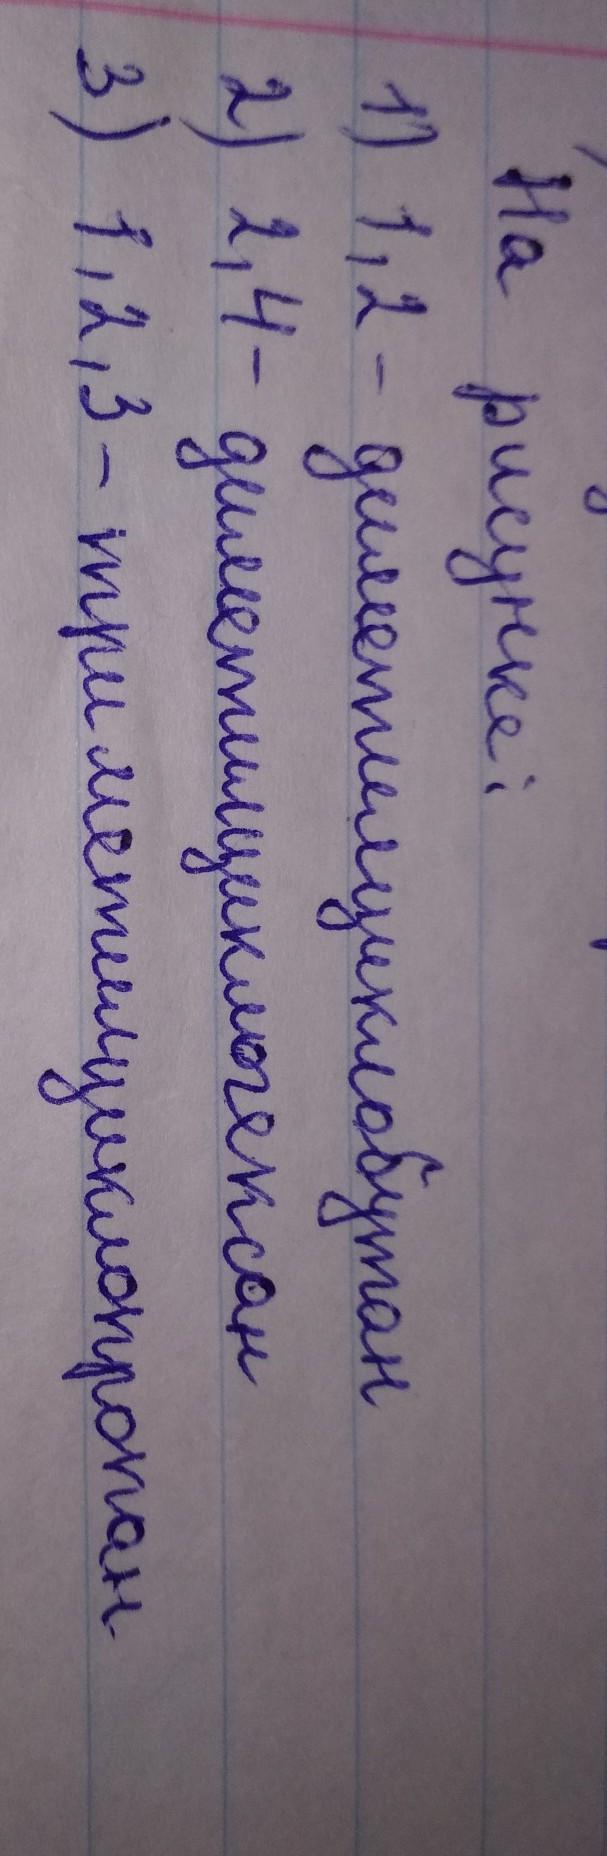 На рисунке:
1) 1,2- диметилциклобутан
2) 2,4- диметилциклогексан
3) 1,2,3- триметилциклопропан